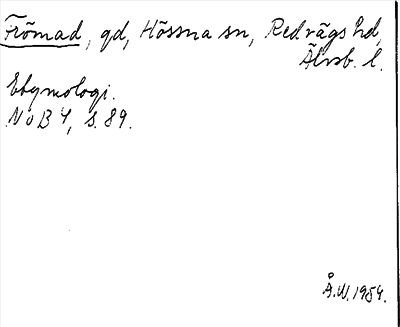 Frömad, gd, Hössna sn, Redvägs hd,
Älvsb. l.
Etymologi.
NoB 4, s. 89.
Å.W. 1954.